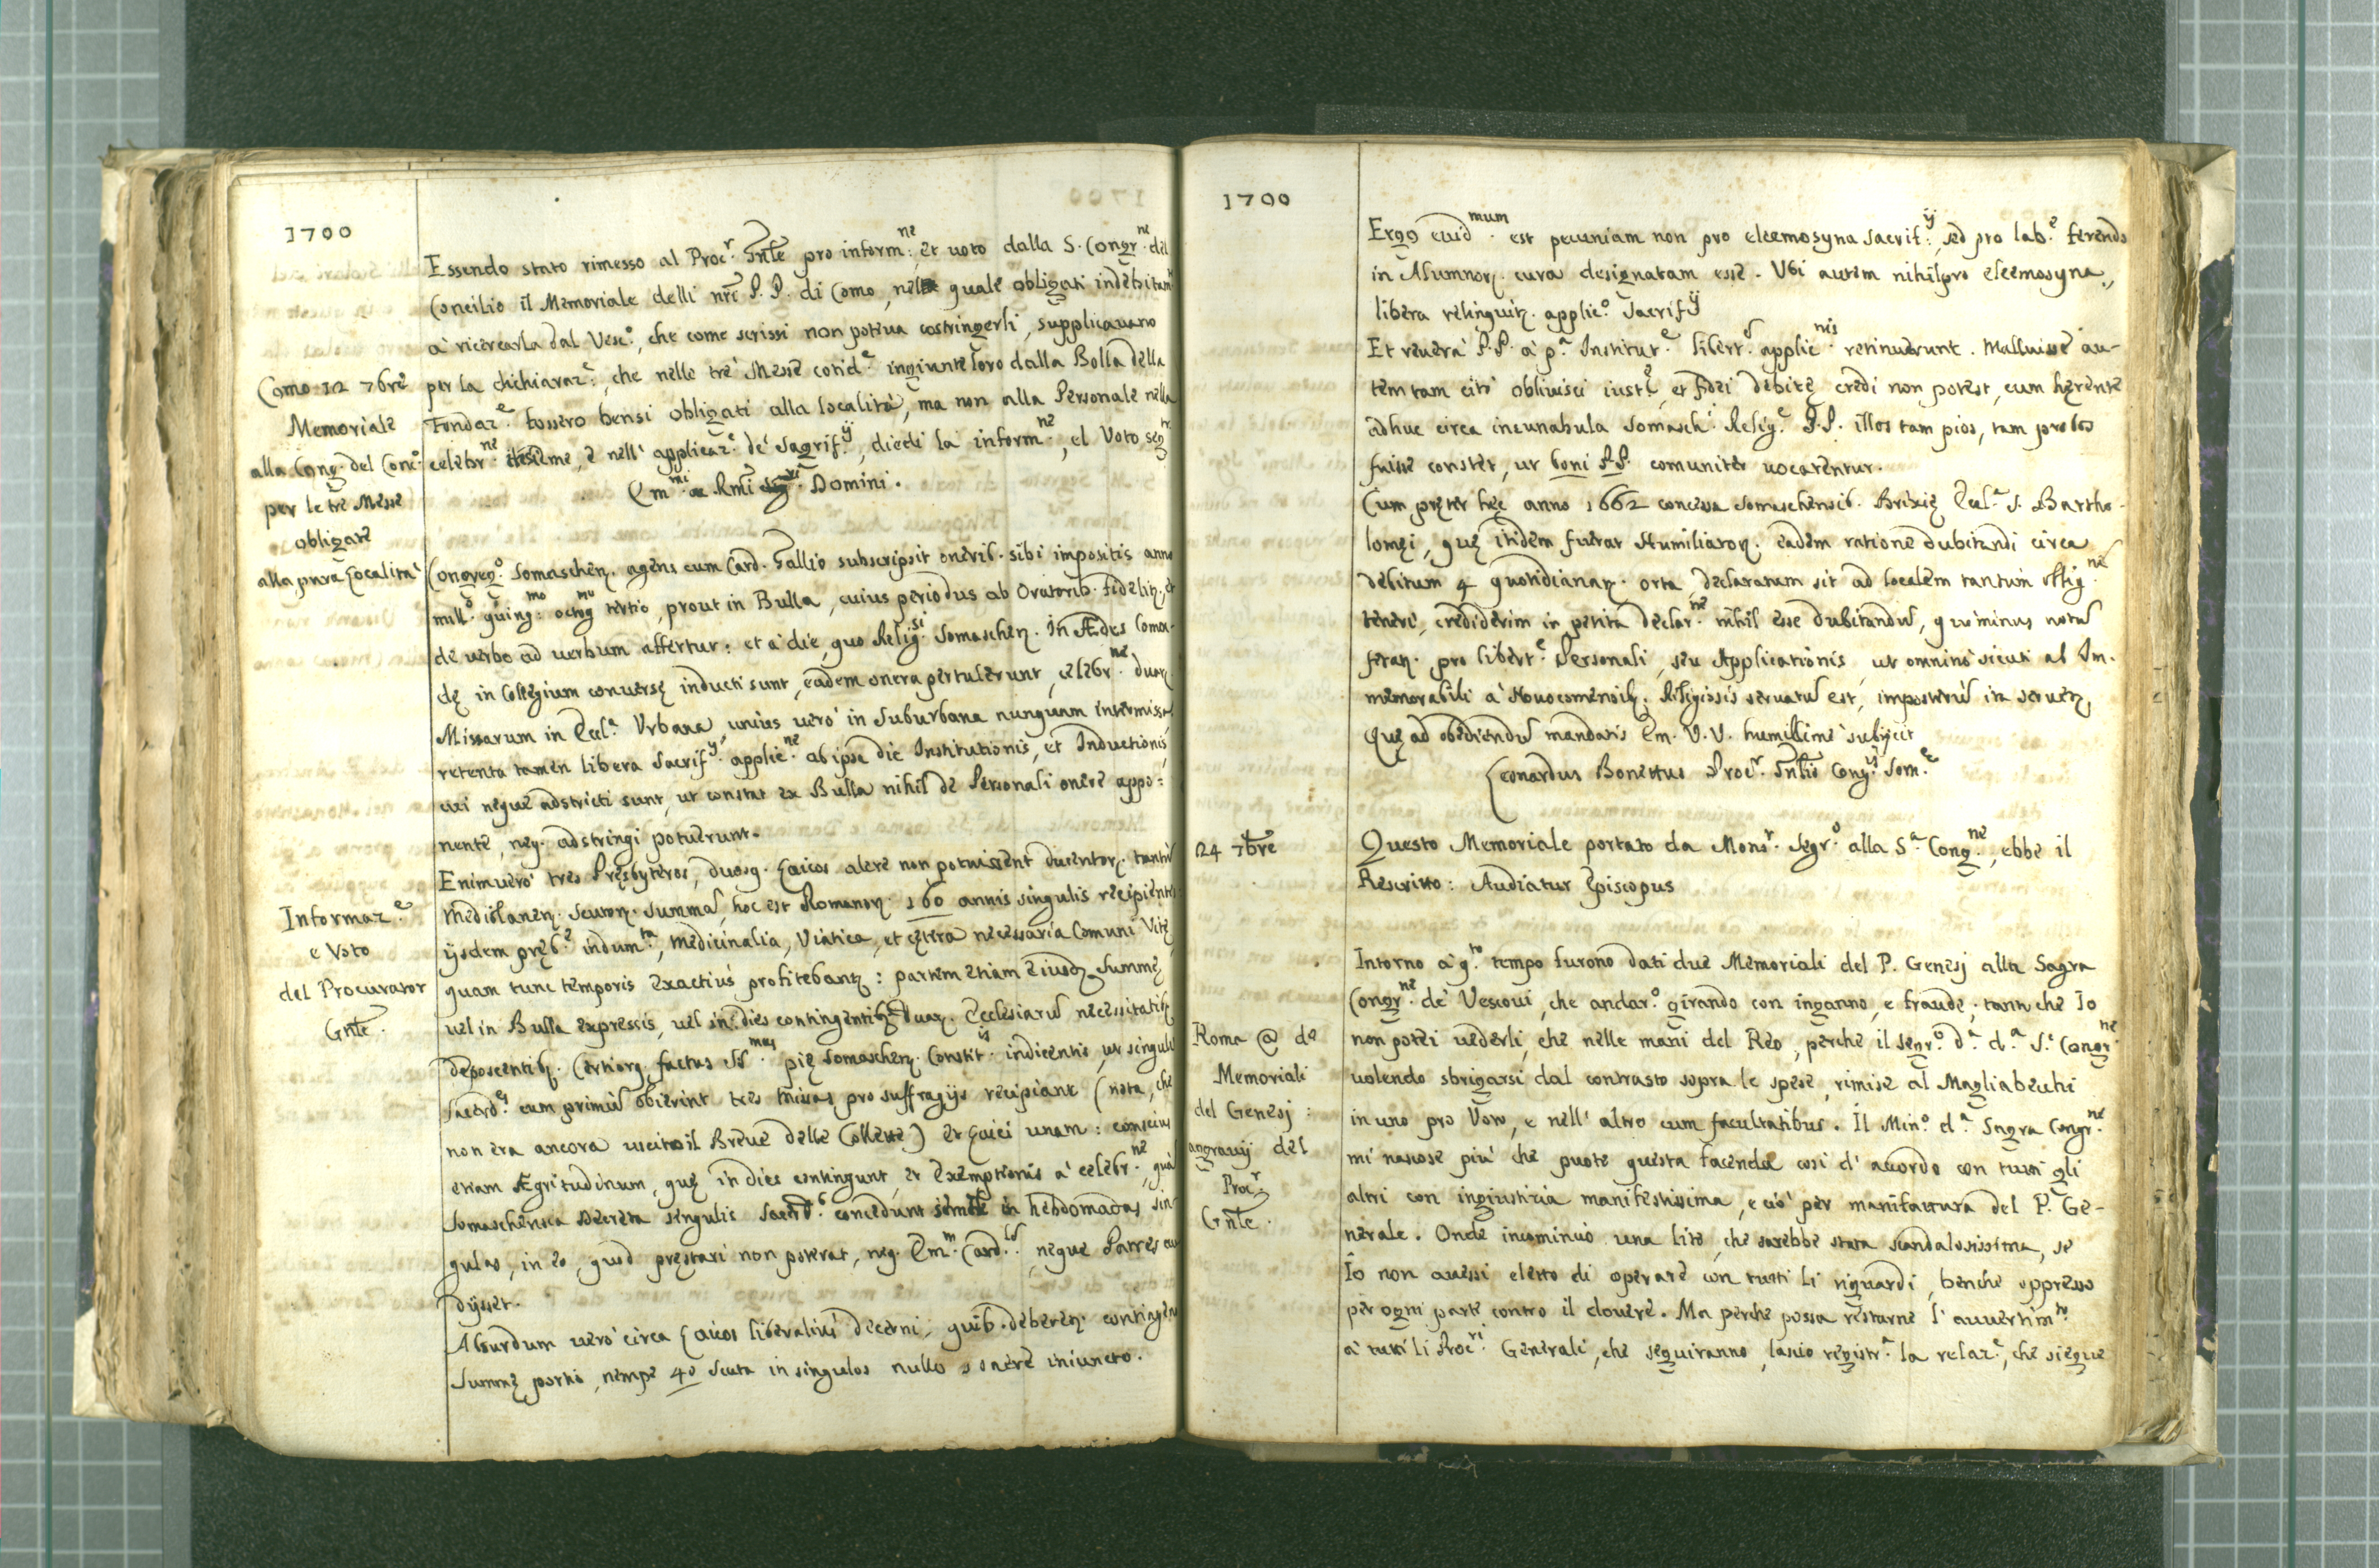 1700
Essendo stato rimesso al Proc.r Gnle pro inform:ne et uoto dalla S. Congr.ne del
Concilio il Memoriale delli nri P. P. di Como, nel quale obligati indebitam
à ricercarla dal Vesc.o, che come scrissi non poteua costringerli, supplicauano
Como 12 7bre
per la dichiaraz.e, che nelle tre Messe cotid.e ingiunte loro dalla Bolla della
Memoriale
Fondaz.e fossero bensi obligati alla località, ma non alla Personale nella
alla Cong. del Conc.o
celebr.ne, e nell' applicaz.e de' Sagrif.ij, diedi la inform.ne, el Voto seg
per le tre Messe
Em.mi Rmi Domini.
obligate
alla pura Località
Congreg.o Somaschen. agens cum Card. Gallio subscripsit onerib. sibi impositis anno
mill.o quing:mo octog.mo tertio, prout in Bulla, cuius periodus ab Oratorib. fideliter, et
de uerbo ad uerbum affertur: et à die, quo Relig.si Somaschen. in Ædes Comen-
dę in Collegium conuersę inducti sunt, eadem onera pertulerunt, celebr.ne duar.
Missarum in Eccl.a Vrbana, unius uerò in Suburbana nunquam intermissa
retenta tamen libera Sacrif.ij applic.ne ab ipsa die Institutionis, et Inductionis,
cui neque adstricti sunt, ut constat ex Bulla nihil de Personali onere appo:
nente, neq. adstringi potuerunt.
Enimuerò tres Pręsbyteros, duosq. Laicos alere non potuissent ducentor. tantù
Informaz.e
Mediolanen. Scutor. summa, hoc est Romanor. 160 annis singulis recipiente
e Voto
ijsdem pręb.e indum.ta, medicinalia, Viatica, et cętera necessaria Comuni Vitę,
del Procurator
quam tunc temporis exactius profitebant: partem etiam eiusd. Summę
Gnle.
uel in Bulla expressis, uel in dies contingentib. duar. Ecclesiarù necessitatib.
deposcentib. Certiorq. factus pię Somaschen. Constit.is indicentis, ut singuli
Sacerd.es cum primùm obierint tres missas pro suffragijs recipiant (nota, che
non era ancora uscito il Breue delle Collette) et Laici unam: conscius
etiam Ægritudinum, quę in dies contingunt, et Exemptionis à celebr.ne, quà
Somaschensia Decreta singulis Sacerd.b concedunt semel in hebdomadas sin
gulas, in eo, quod pręstari non poterat, neq. Em.m Card.lis, neque Patres
dijsset.
Absurdum uerò circa Laicos liberaliùs decerni, quib. deberet. contingens
Summę portio, nempe 40 Scuta in singulos nullo onere iniuncto.
1700
Ergo euid.mum est pecuniam non pro eleemosyna Sacrif:ij, sed pro lab.e ferendo
in Alumnor. cura designatam esse. Vbi autem nihil pro eleemosyna,
libera relinquit. applic.o Sacrif.ij
Et reuerà P.P. à p.a Institut.e libert. applic.nis retinuerunt. Maluisse au-
tem tam citò obliuisci iust.e, et fidei debitę credi non potest, cum herente
adhuc circa incunabula Somasch. Relig.e P.P. illos tam pios, tam probos
fuisse constet, ut boni P.P. comuniter uocarentur.
Cum pręter hęc anno 1662 concessa Somaschensib. Brixię Eccl.a S. Bartho-
lomęi, quę itidem fuerat Humiliator. eadem ratione dubitandi circa
debitum 4 quotidianar. orta, declaratum sit ad localem tantùm Oblig.ne
teneri, crediderim in petita declar.ne nihil esse dubitandù, quominus notù
ferat. pro libert.e Personali, seu Applicationis, ut omninò sicuti ab Im-
memorabili à Nouocomensib. Religiosis seruatù est, imposterù ita seruet.
Quę ad obediendù mandatis Em. V.V. humillimè subijcit
Leonardus Bonettus Proc.r Gnlis Cong.is Som.e
24 7bre
Questo Memoriale portato da Mons.r Segr.o alla S.a Cong.ne, ebbe il
Rescritto: Audiatur Episcopus
Intorno à q.to tempo furono dati due Memoriali del P. Genesj alla Sagra
Congr.ne de' Vescoui, che andar.o girando con inganno, e fraude, tanto che Io
Roma @ de
non potei uederli, che nelle mani del Reo, perche il Segr.o d.a d.a S.a Congr.ne
Memoriali
uolendo sbrigarsi dal contrasto sopra le spese, rimise al Magliabechi
del Genesj:
in uno pro Voto, e nell' altro cum facultatibus. Il Min.o d.a Sagra Congr.ne
aggrauij del
mi nascose più che puote questa facenda così d' acordo con tutti gli
Proc.r
altri con ingiustizia manifestissima, e ciò per manifattura del P. Ge-
Gnle.
nerale. Onde incominciò una lite, che sarebbe stata scandalosissima, se
Io non auessi eletto di operare con tutti li riguardi, benche oppresso
per ogni parte contro il douere. Ma perche possa restarne l' auuertim.to
à tutti li Proc.ri Generali, che seguiranno, lascio registr.a la relaz.e, che siegue